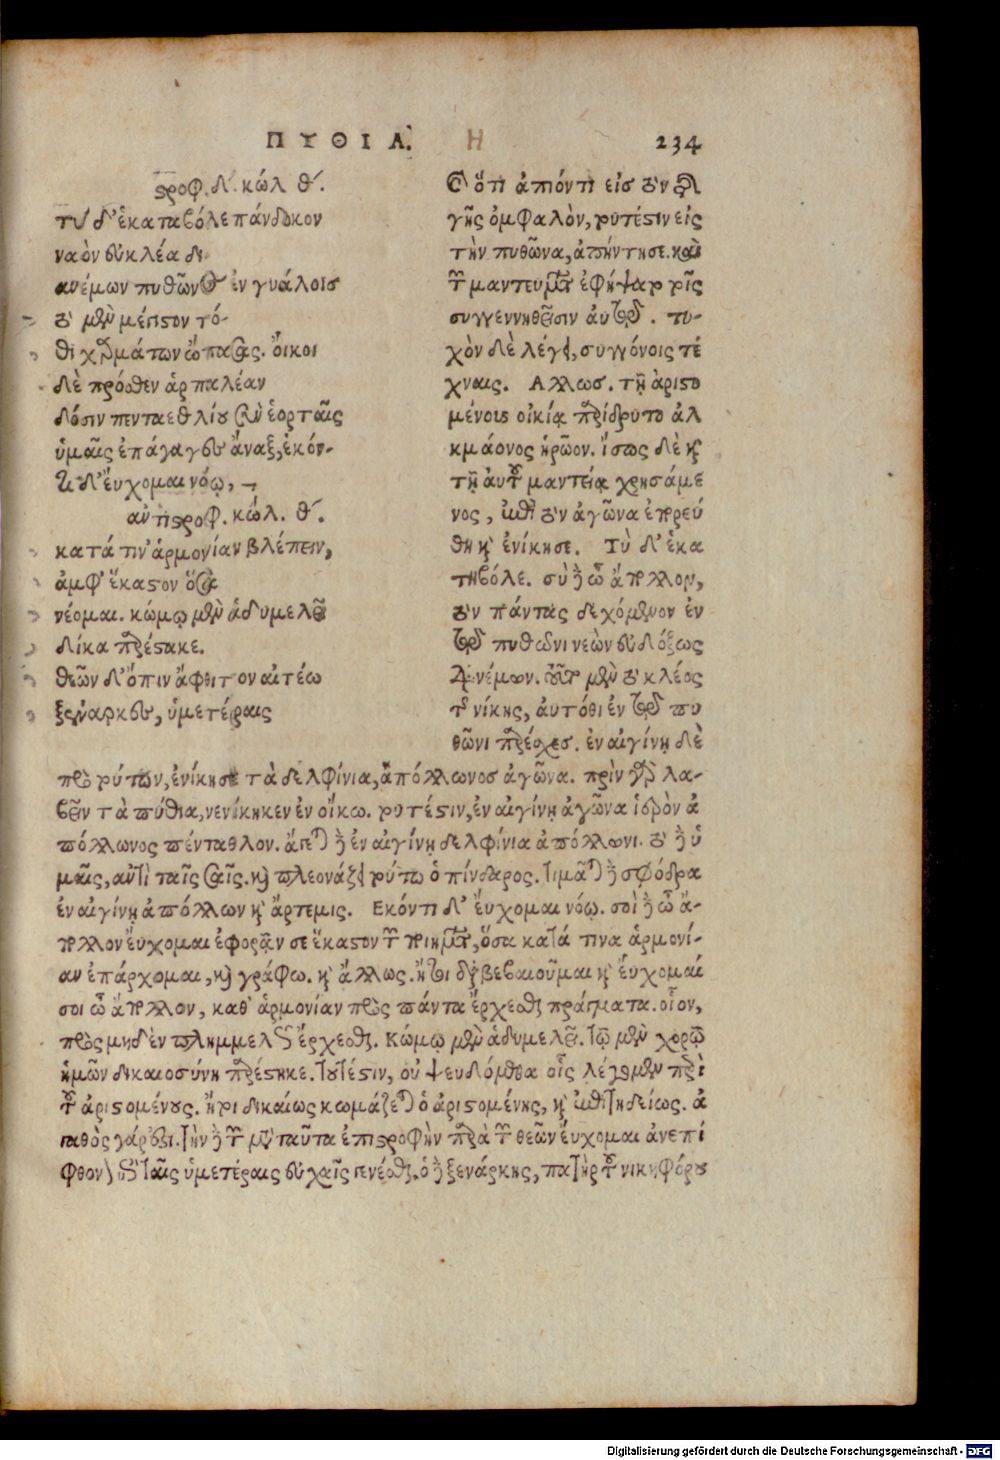 ΠΥΘΙΑ. Η 234
στροφ. δ. κώλ θ.
τὺ δ' ἑκαταβόλε πάνδοκον
ναὸν εὐκλέα δι
ανέμων πυθῶνος ἐν γυάλοις
τὸ μὲν μέγιστον τό-
θι χαρμάτων ὤπασας. οἴκοι
δὲ πρόσθεν ἁρπαλέαν
δόσιν πενταεθλίου σὺν ἑορταῖς
ὑμαῖς ἐπάγαγες ἄναξ, ἑκόν-
τι δ' εὔχομαι νόῳ,
αντιστροφ. κώλ. θ.
κατά τιν' ἁρμονίαν βλέπειν,
ἀμφ' ἕκαστον ὅσα
νέομαι. κώμῳ μὲν ἁδυμελεῖ
δίκα παρέστακε.
θεῶν δ' ὄπιν ἄφθιτον αἰτέω
ξείναρκες, ὑμετέραις
ὅτι ἀπιόντι εἰς τὸν τῆς
γῆς ὀμφαλὸν, τουτέστιν εἰς
τὴν πυθῶνα, ἀπήντησε. καὶ
τῶν μαντευμάτων ἐφήψατο τοῖς
συγγεννηθεῖσιν αὐτῷ. τυ-
χὸν δὲ λέγει, συγγόνοις τέ
χναις. Αλλως. τῇ ἀριστο
μένους οἰκίᾳ παρίδρυτο ἀλ
κμάονος ἡρῶον. ἴσως δὲ καὶ
τῇ αὐτοῦ μαντείᾳ χρησάμε
νος, ἐπὶ τὸν ἀγῶνα ἐπορεύ
θη καὶ ἐνίκησε. Τὺ δ' ἑκα
τηβόλε. σὺ δὲ ὦ ἄπολλον,
τὸν πάντας δεχόμενον ἐν
τῷ πυθῶνι νεὼν εὐδόξως
διανέμων. τοῦτο μὲν τὸ κλέος
τῆς νίκης, αὐτόθι ἐν τῷ πυ
θῶνι παρέσχες. ἐν αἰγίνῃ δὲ
πρὸ τούτων, ἐνίκησε τὰ δελφίνια, ἀπόλλωνος ἀγῶνα. πρὶν γὰρ λα-
βεῖν τὰ πύθια, νενίκηκεν ἐν οἴκω. τουτέστιν, ἐν αἰγίνῃ ἀγῶνα ἱερὸν ἀ
πόλλωνος πένταθλον. ἄγεται δὲ ἐν αἰγίνῃ δελφίνια ἀπόλλωνι. τὸ δὲ ὑ
μαῖς, αντὶ ταῖς σαῖς. καὶ πλεονάζει τούτω ὁ πίνδαρος. τιμᾶται δὲ σφόδρα
ἐν αἰγίνῃ ἀπόλλων καὶ ἄρτεμις. Εκόντι δ' εὔχομαι νόῳ. σοὶ δὲ ὦ ἄ-
πολλον εὔχομαι ἐφορᾷν σε ἕκαστον τῶν ποιημάτων, ὅσα κατά τινα ἁρμονί-
αν ἐπάρχομαι, καὶ γράφω. καὶ ἄλλως. ἤτοι διαβεβαιοῦμαι καὶ εὔχομαί
σοι ὦ ἄπολλον, καθ' ἁρμονίαν πρὸς πάντα ἔρχεσθαι πράγματα. οἷον,
πρὸς μηδὲν πλημμελὲς ἔρχεσθαι. Κώμῳ μὲν ἁδυμελεῖ. τῷ μὲν χορῷ
ἡμῶν δικαιοσύνη παρέστηκε. τουτέστιν, οὐ ψευδόμεθα οἷς λέγομεν περὶ
τοῦ ἀριστομένους. ἤτοι δικαίως κωμάζεται ὁ ἀριστομένης, καὶ ἐπιτηδείως. ἀ
γαθὸς γάρ ἐστι. τὴν δὲ τῶν μετὰ ταῦτα ἐπιστροφὴν παρὰ τῶν θεῶν εὔχομαι ἀνεπί
φθονον ταῖς ὑμετέραις εὐχαῖς γενέσθαι. ὁ δὲ ξενάρκης, πατὴρ τοῦ νικηφόρου
Digitalisierung gefördert durch die Deutsche Forschungsgemeinschaft - DFG